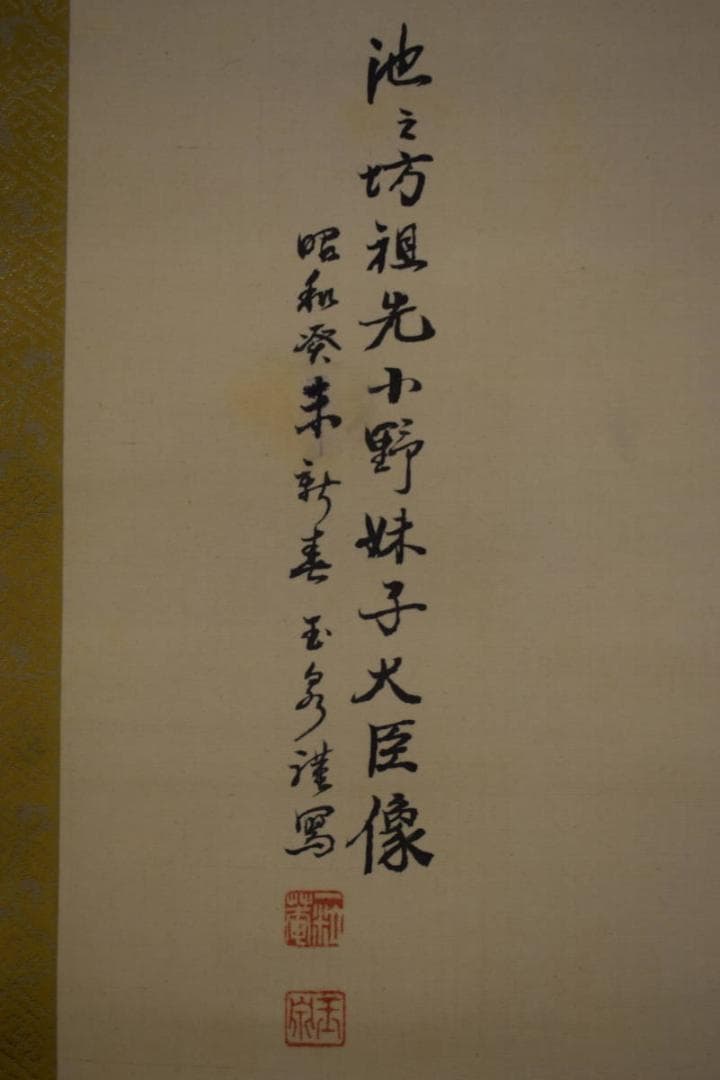 池之坊祖先小野妹子大臣像
昭和癸未新春 玉泉謹写
玉泉